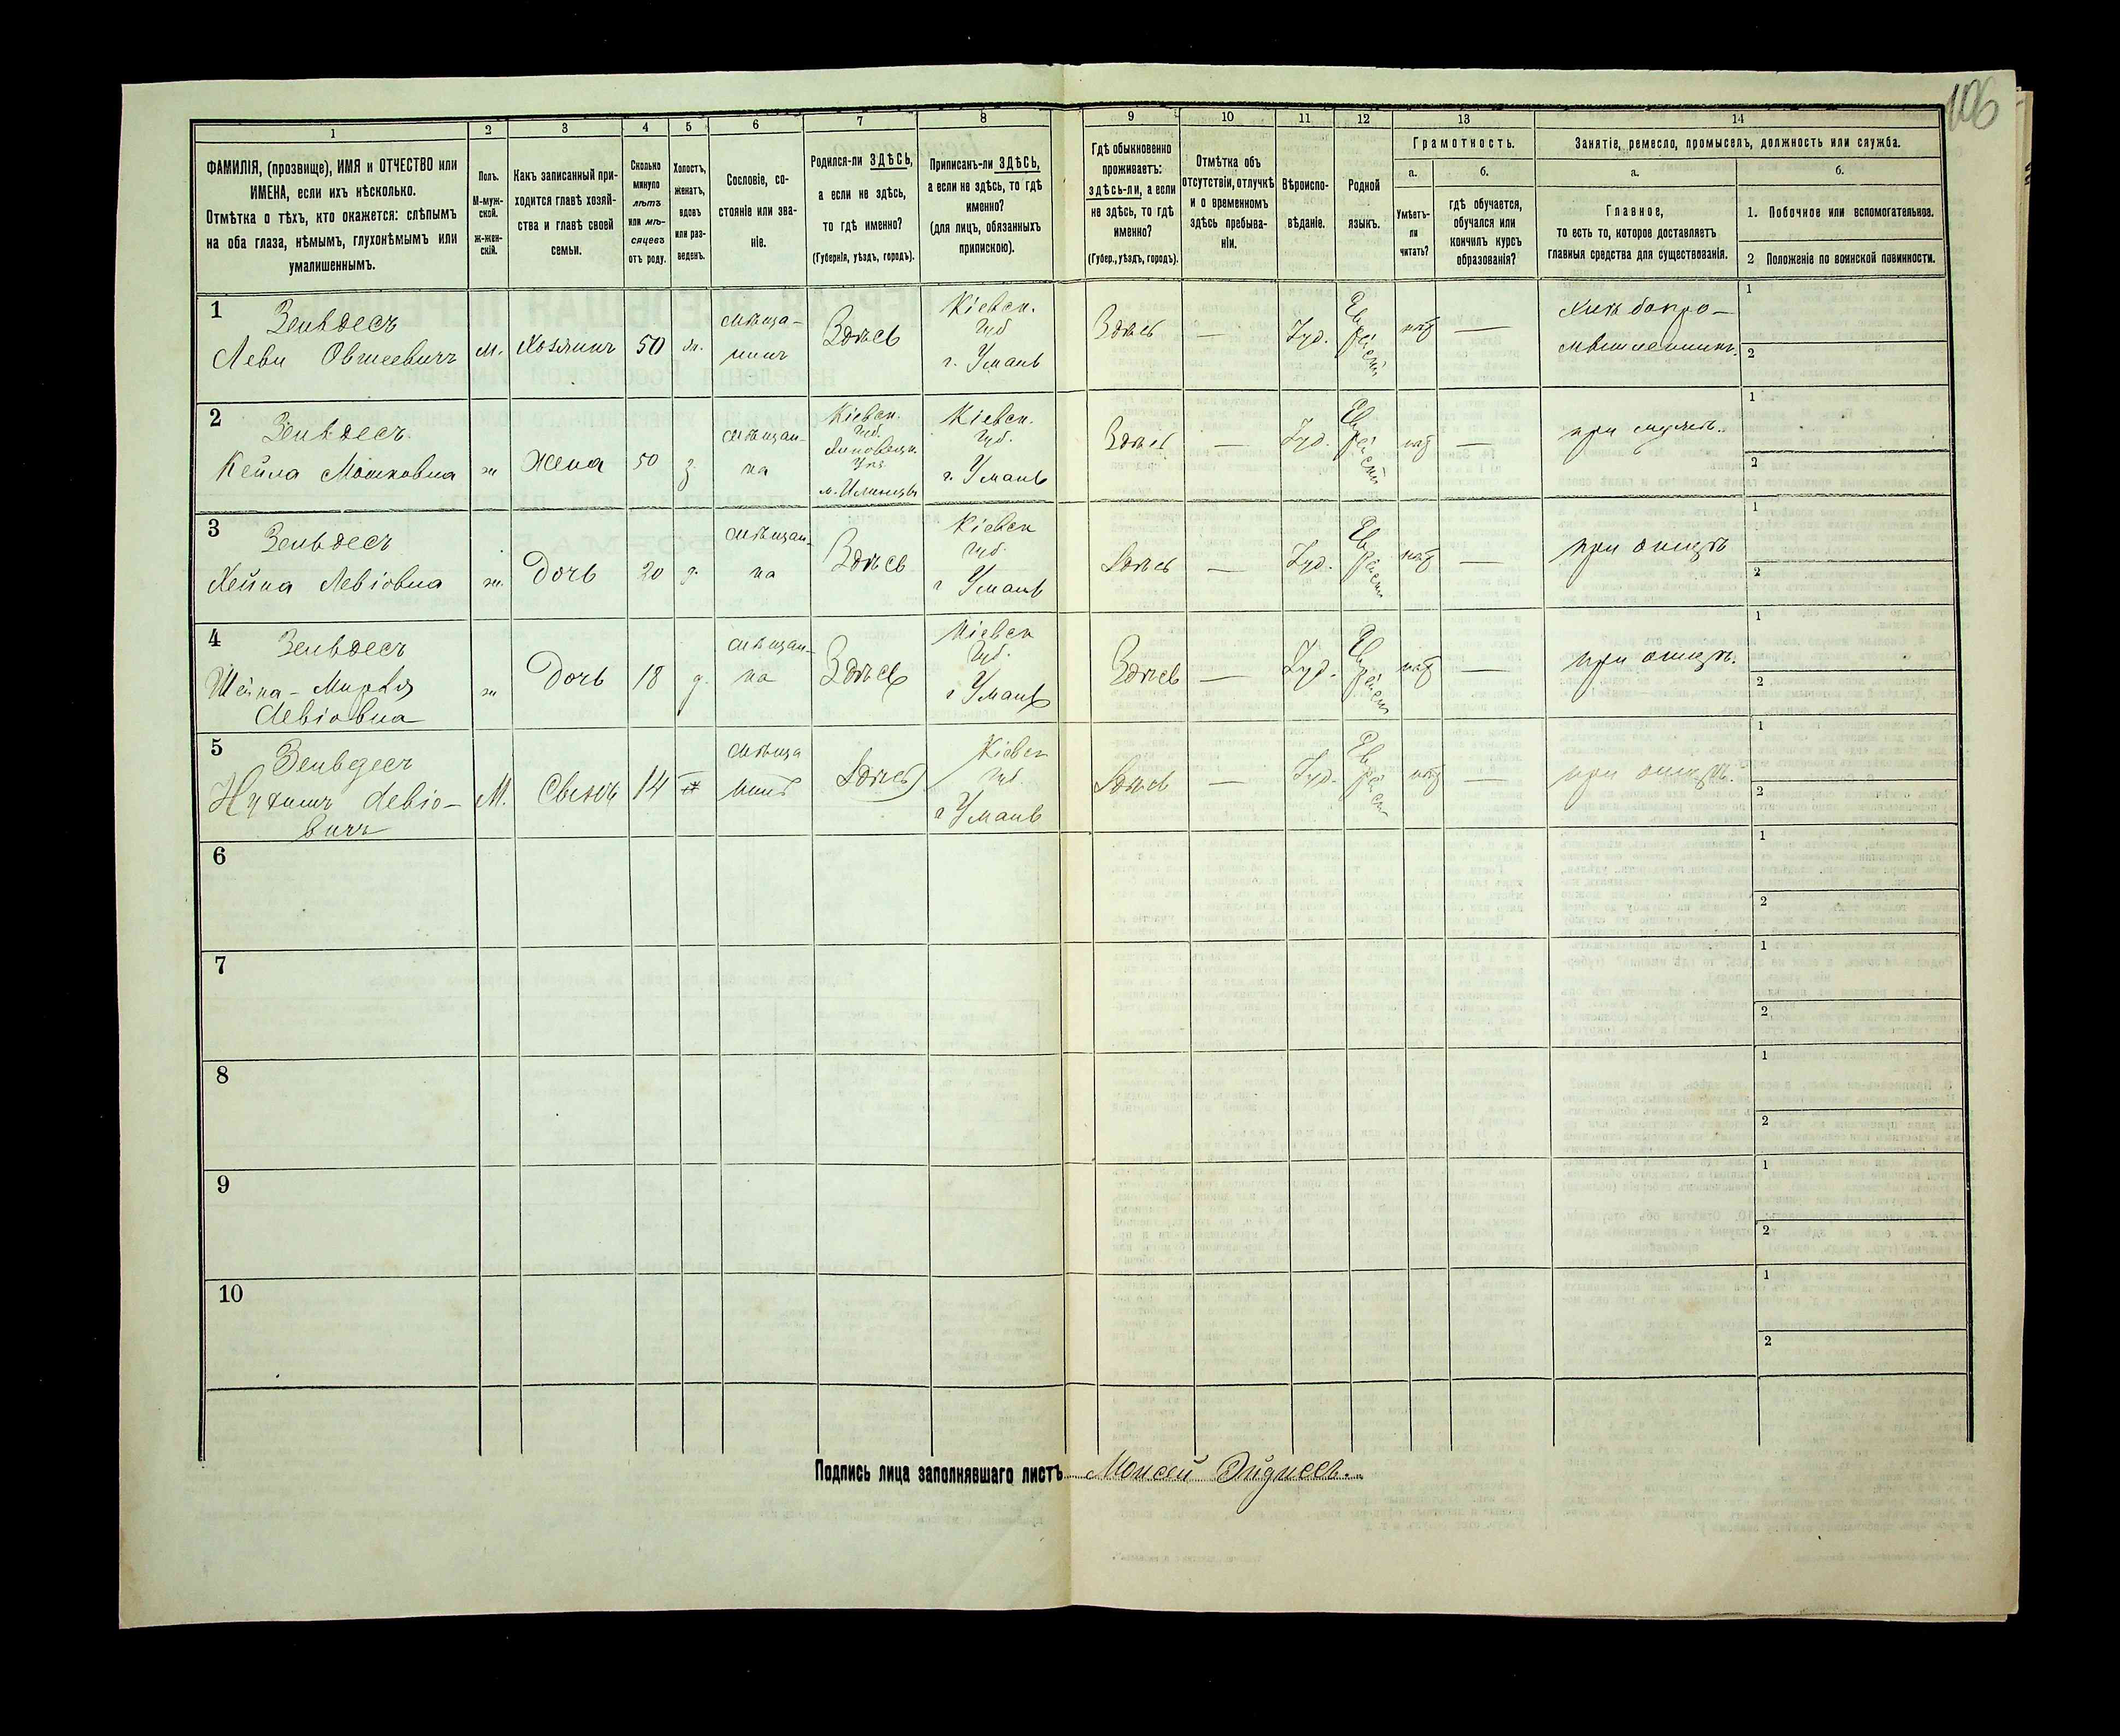 106
1 2 3 4 5 6 7 8 9 10 11 12 13 14
ФАМИЛІЯ, (прозвище), ИМЯ и ОТЧЕСТВО или
ИМЕНА, если ихъ нѣсколько.
Отмѣтка о тѣхъ, кто окажется: слѣпымъ
на оба глаза, нѣмымъ, глухонѣмымъ или
умалишеннымъ.
Полъ.
М-муж-
ской.
Ж-жен-
скій.
Какъ записанный при-
ходится главѣ хозяй-
ства и главѣ своей
семьи.
Сколько
минуло
лѣтъ
или мѣ-
сяцевъ
отъ роду.
Холостъ,
женатъ,
вдовъ
или раз-
веденъ.
Сословіе, со-
стояніе или зва-
ніе.
Родился-ли ЗДѢСЬ,
а если не здѣсь,
то гдѣ именно?
(Губернія, уѣздъ, городъ).
Приписанъ-ли ЗДѢСЬ,
а если не здѣсь, то гдѣ
именно?
(для лицъ, обязанныхъ
припискою).
Гдѣ обыкновенно
проживаетъ:
здѣсь-ли, а если
не здѣсь, то гдѣ
именно?
(Губер., уѣздъ, городъ).
Отмѣтка объ
отсутствіи, отлучкѣ
и о временномъ
здѣсь пребыва-
ніи.
Вѣроиспо-
вѣданіе.
Родной
языкъ.
Грамотность.
а.
Умѣетъ-
ли
читать?
б.
гдѣ обучается,
обучался или
кончилъ курсъ
образованія?
Занятіе, ремесло, промыселъ, должность или служба.
а.
Главное,
то есть то, которое доставляетъ
главныя средства для существованія.
б.
1. Побочное или вспомогательное.
2 Положеніе по воинской повинности.
1
Зельдесъ
Леви Овшеевичъ
м. Хозяинъ 50
мѣща-
нинъ
Здѣсь
Кіевск.
Губ
г. Умань
Здѣсь — Іуд. нѣтъ —
1
2
2
Зельдесъ
Кейла Мошковна
ж Жена 50 з.
мѣщан-
ка
Кіевск.
Губ.
Липовецк.
м. Илинцы
Кіевск.
Губ.
г. Умань
Здѣсь — Іуд. нѣтъ —
при мужѣ.
1
2
3
Зельдесъ
Хейка Левіовна
ж. Дочь 20 д.
мѣщан-
ка
Здѣсь
Кіевск
Губ.
г Умань
Здѣсь — Іуд. нѣтъ —
при отцѣ
1
2
4
Зельдесъ
Левіовна
ж Дочь 18 д.
мѣщан-
ка
Здѣсь
Кіевск
Губ.
г Умань
Здѣсь — Іуд. нѣтъ —
при отцѣ.
1
2
5
Зельдесъ
Нухимъ Левіо-
вичъ
М. Сынъ 14
мѣща
нинъ
Здѣсь
Кіевск
Губ.
г Умань
Здѣсь — Іуд. нѣтъ —
при отцѣ.
1
2
6
1
2
7
1
2
8
1
2
9
1
2
10
1
2
Подпись лица заполнявшаго листъ Моисей